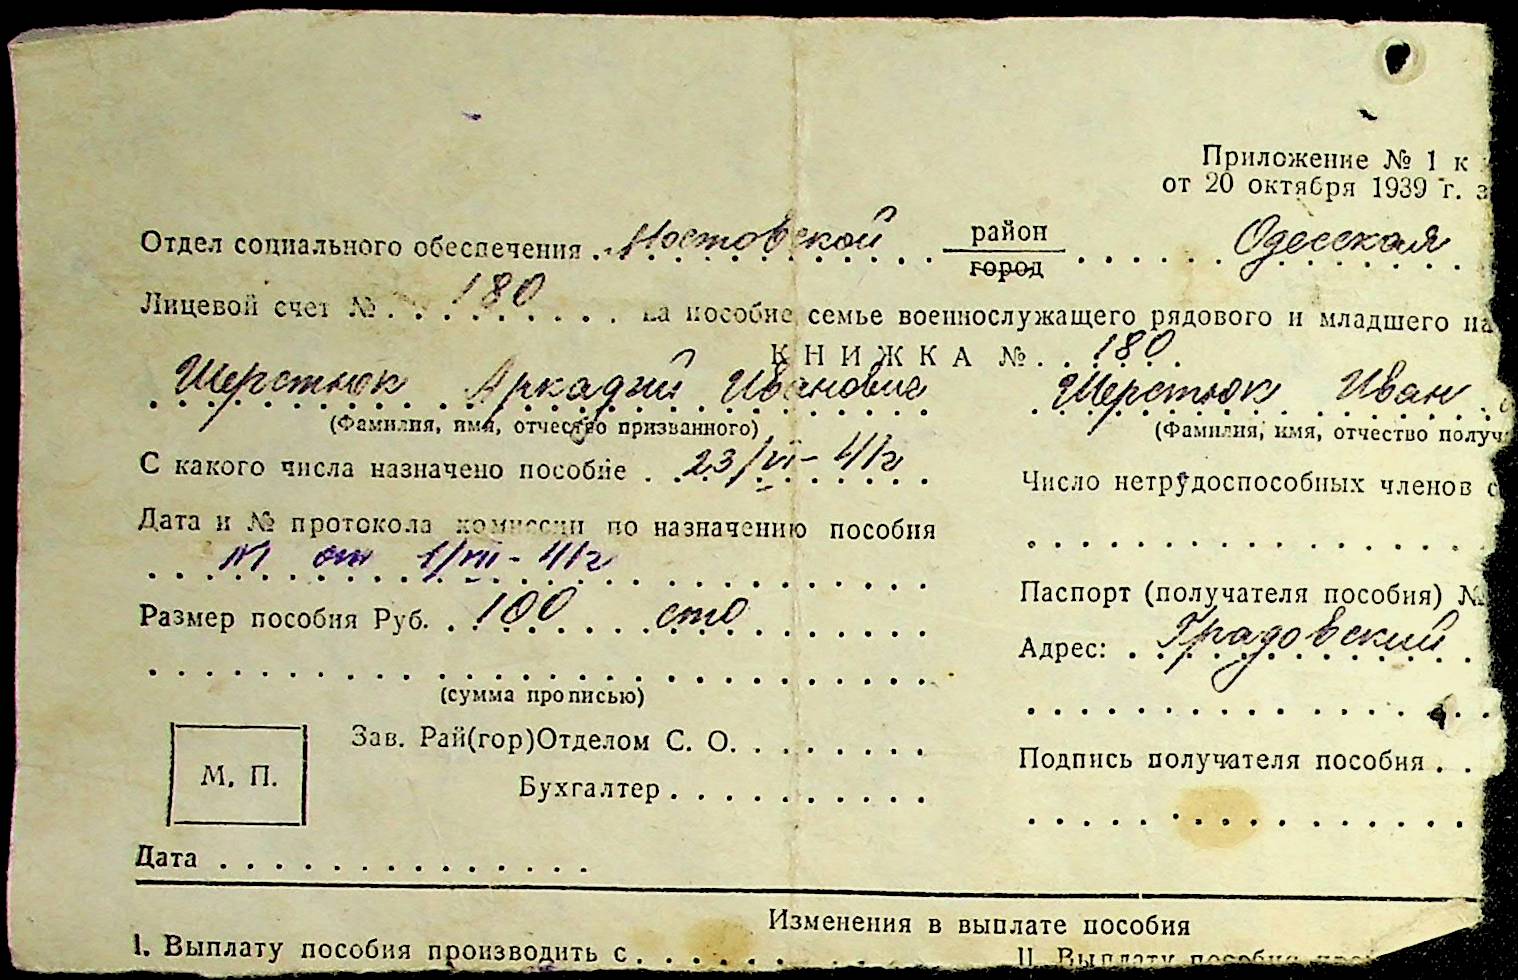 Приложение № 1 к
от 20 октября 1939 г. з
Отдел социального обеспечения Мостовской район город Одесская
Лицевой счет № 180 на пособие семье военнослужащего рядового и младшего на
КНИЖКА № 180
Шерстюк Аркадий Иванович Шерстюк Иван
(Фамилия, имя, отчество призванного) (Фамилия, имя, отчество получ
С какого числа назначено пособие 23/VI-41г
Число нетрудоспособных членов с
Дата и № протокола комиссии по назначению пособия
от 1/VII-41г
Паспорт (получателя пособия) №
Размер пособия Руб. 100 сто
Адрес: Градовский
(сумма прописью)
Зав. Рай(гор)Отделом С. О.
Подпись получателя пособия
М. П.
Бухгалтер
Дата
Изменения в выплате пособия
I. Выплату пособия производить с
II. Выплату пособия